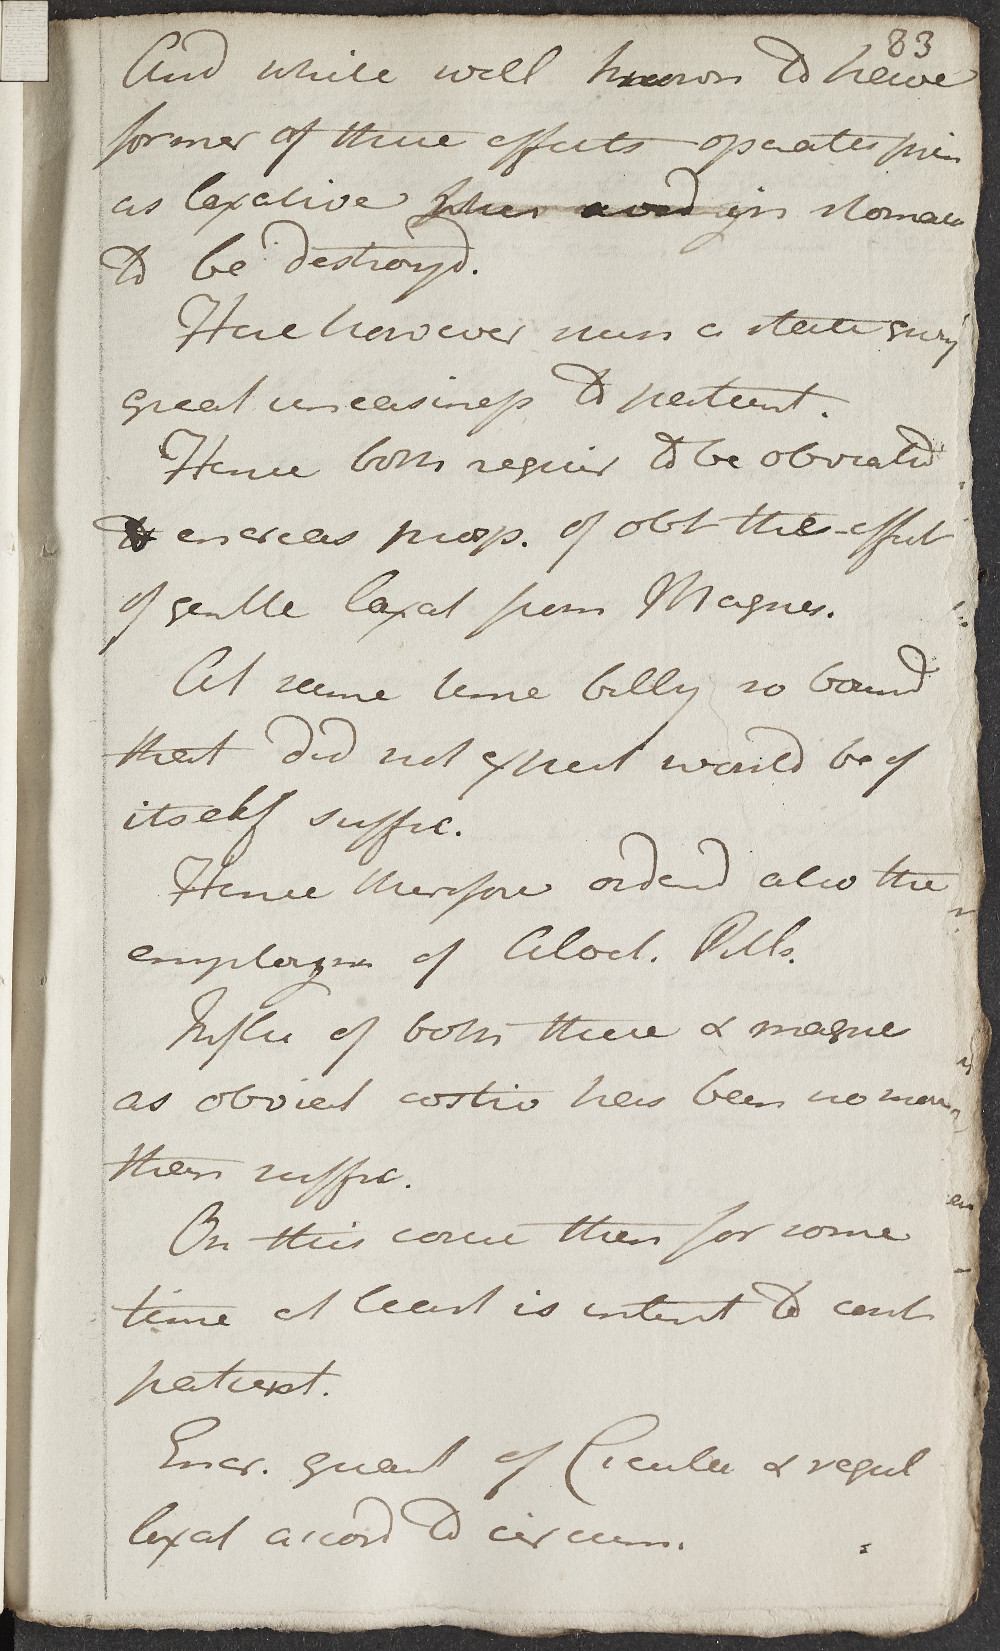 83
And while well known to have
former of these effects operates prin
as laxative when acid in stomac
to be destroyd.
Here however was a state givg
great uneasiness to patient.
Hence both requir to be obviated
& encreas prosp. of obt this effect
of gentle laxat from Magnes.
At same time belly so bound
that did not expect would be of
itself suffic.
Hence therefore orderd also the
employm of Aloet. Pills.
Influ of both these & magne
as obviat costiv has been no more
then suffic.
On this course then for some
time at least is intent to cont
patient.
Encr. quant of Cicuta & regul
laxat accord to circum.